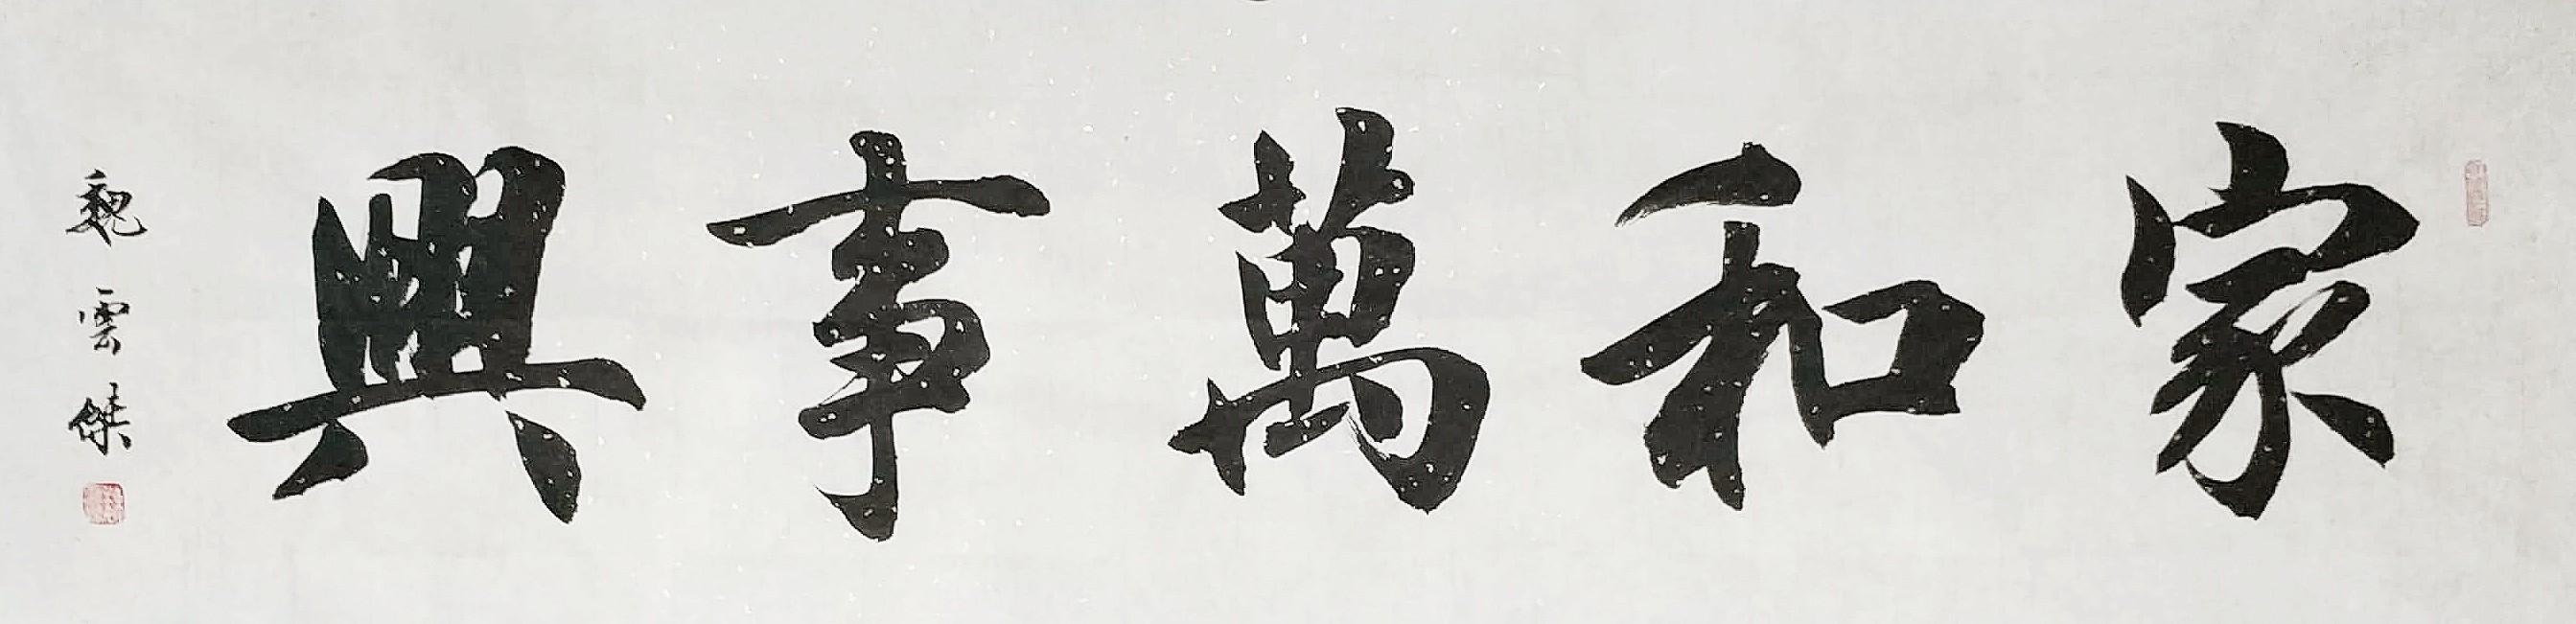 家和萬事興
魏雲傑